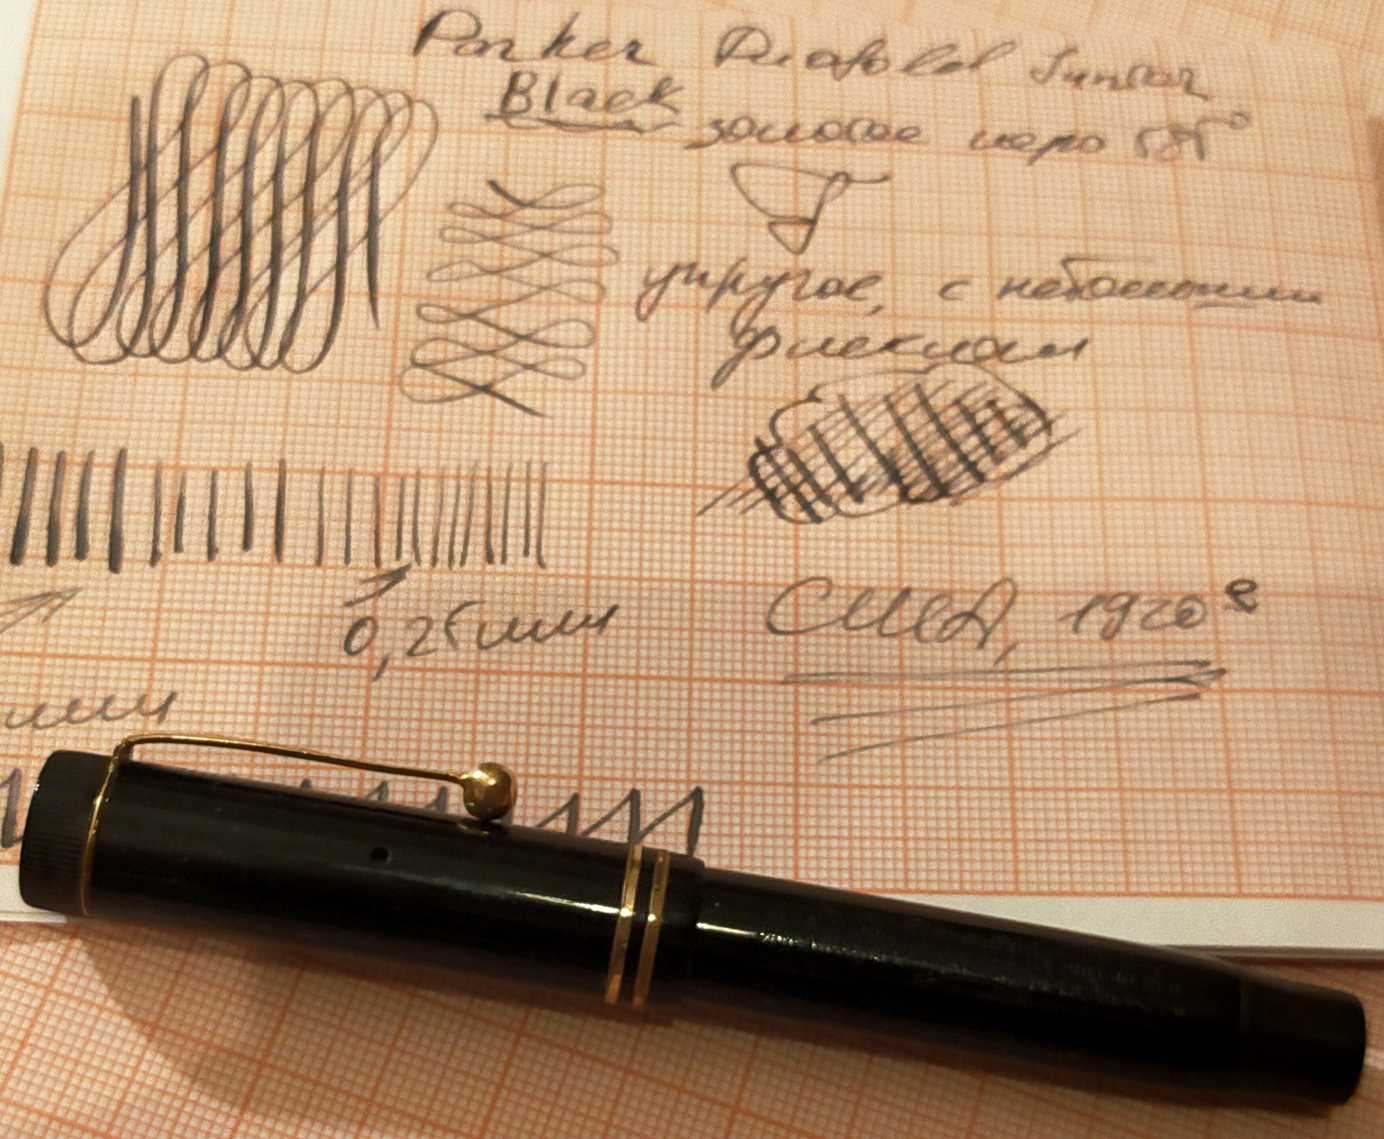 Parker Duofold Junior
Black золотое перо 585°
упругое, с небольшим
флексом
0,25 мм
США, 1920е
мм